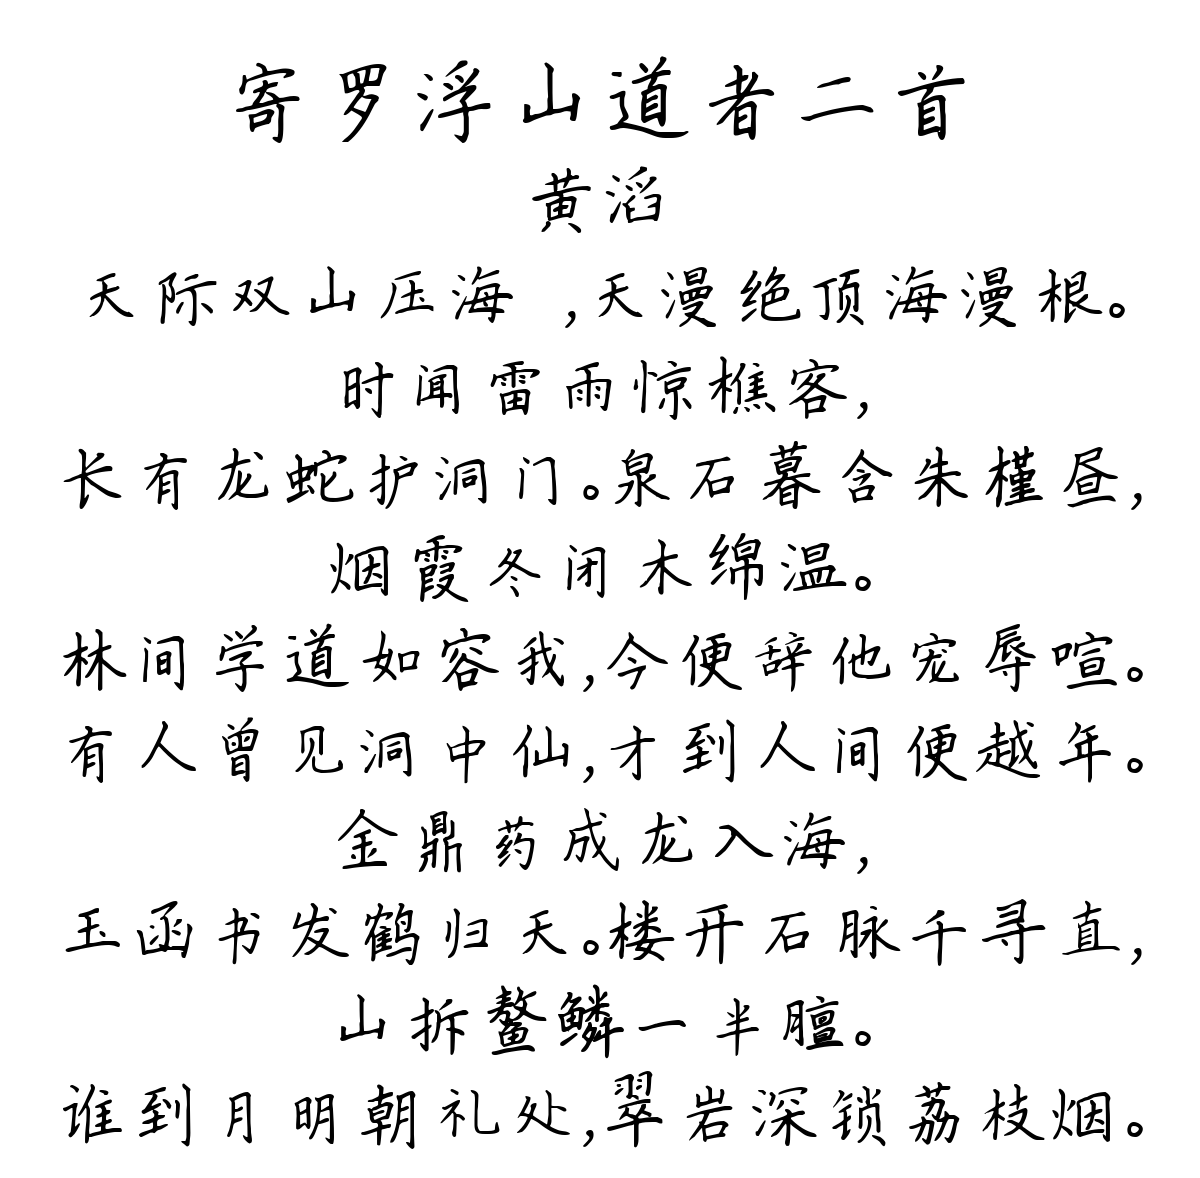 寄罗浮山道者二首
黄滔
天际双山压海 ,天漫绝顶海漫根。
时闻雷雨惊樵客,
长有龙蛇护洞门。泉石暮含朱槿昼,
烟霞冬闭木绵温。
林间学道如容我,今便辞他宠辱喧。
有人曾见洞中仙,才到人间便越年。
金鼎药成龙入海,
玉函书发鹤归天。楼开石脉千寻直,
山拆鳌鳞一半膻。
谁到月明朝礼处,翠岩深锁荔枝烟。